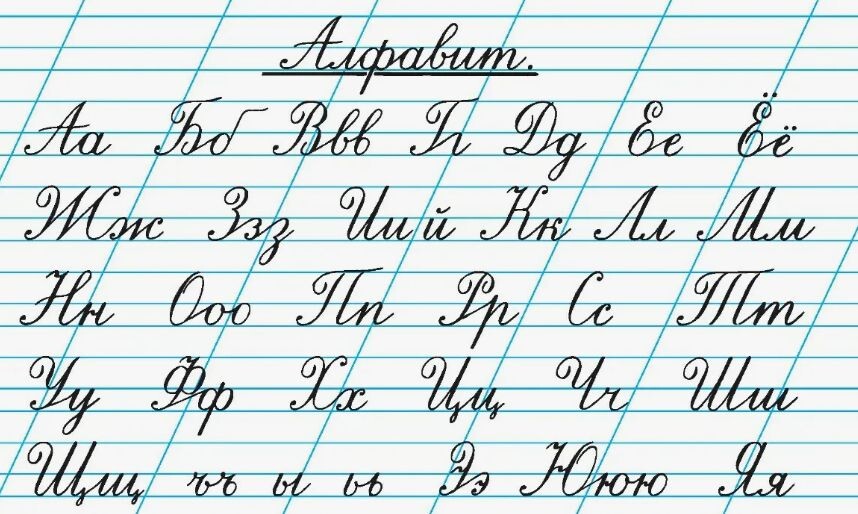 Алфавит.
Аа Бб Ввв Гг Дд Ее Ёё
Жж Ззз Ии й Кк Лл Мм
Нн Ооо Пп Рр Сс Тт
Уу Фф Хх Цц Чч Шш
Щщ ъъ ы ьь Ээ Ююю Яя